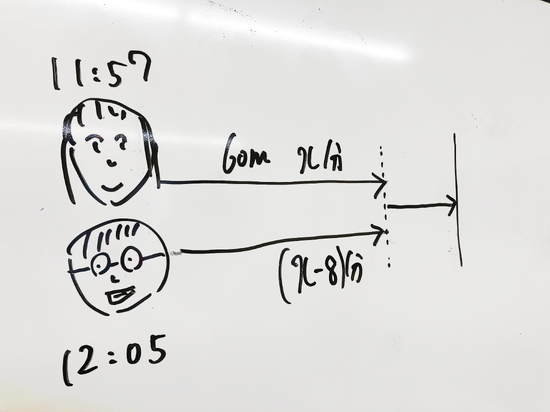 11:57
60m x/分
(x-8)/分
12:05